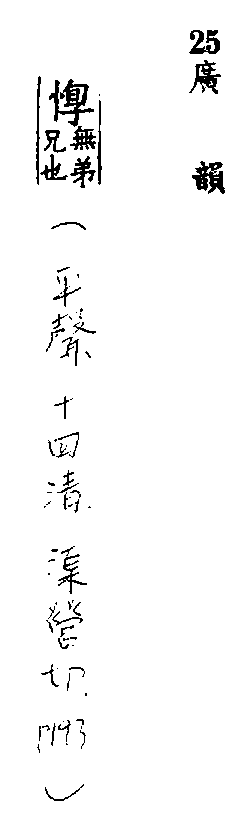 25 廣韻
惸 無弟兄也 (平聲 十四清 渠營切 P193)